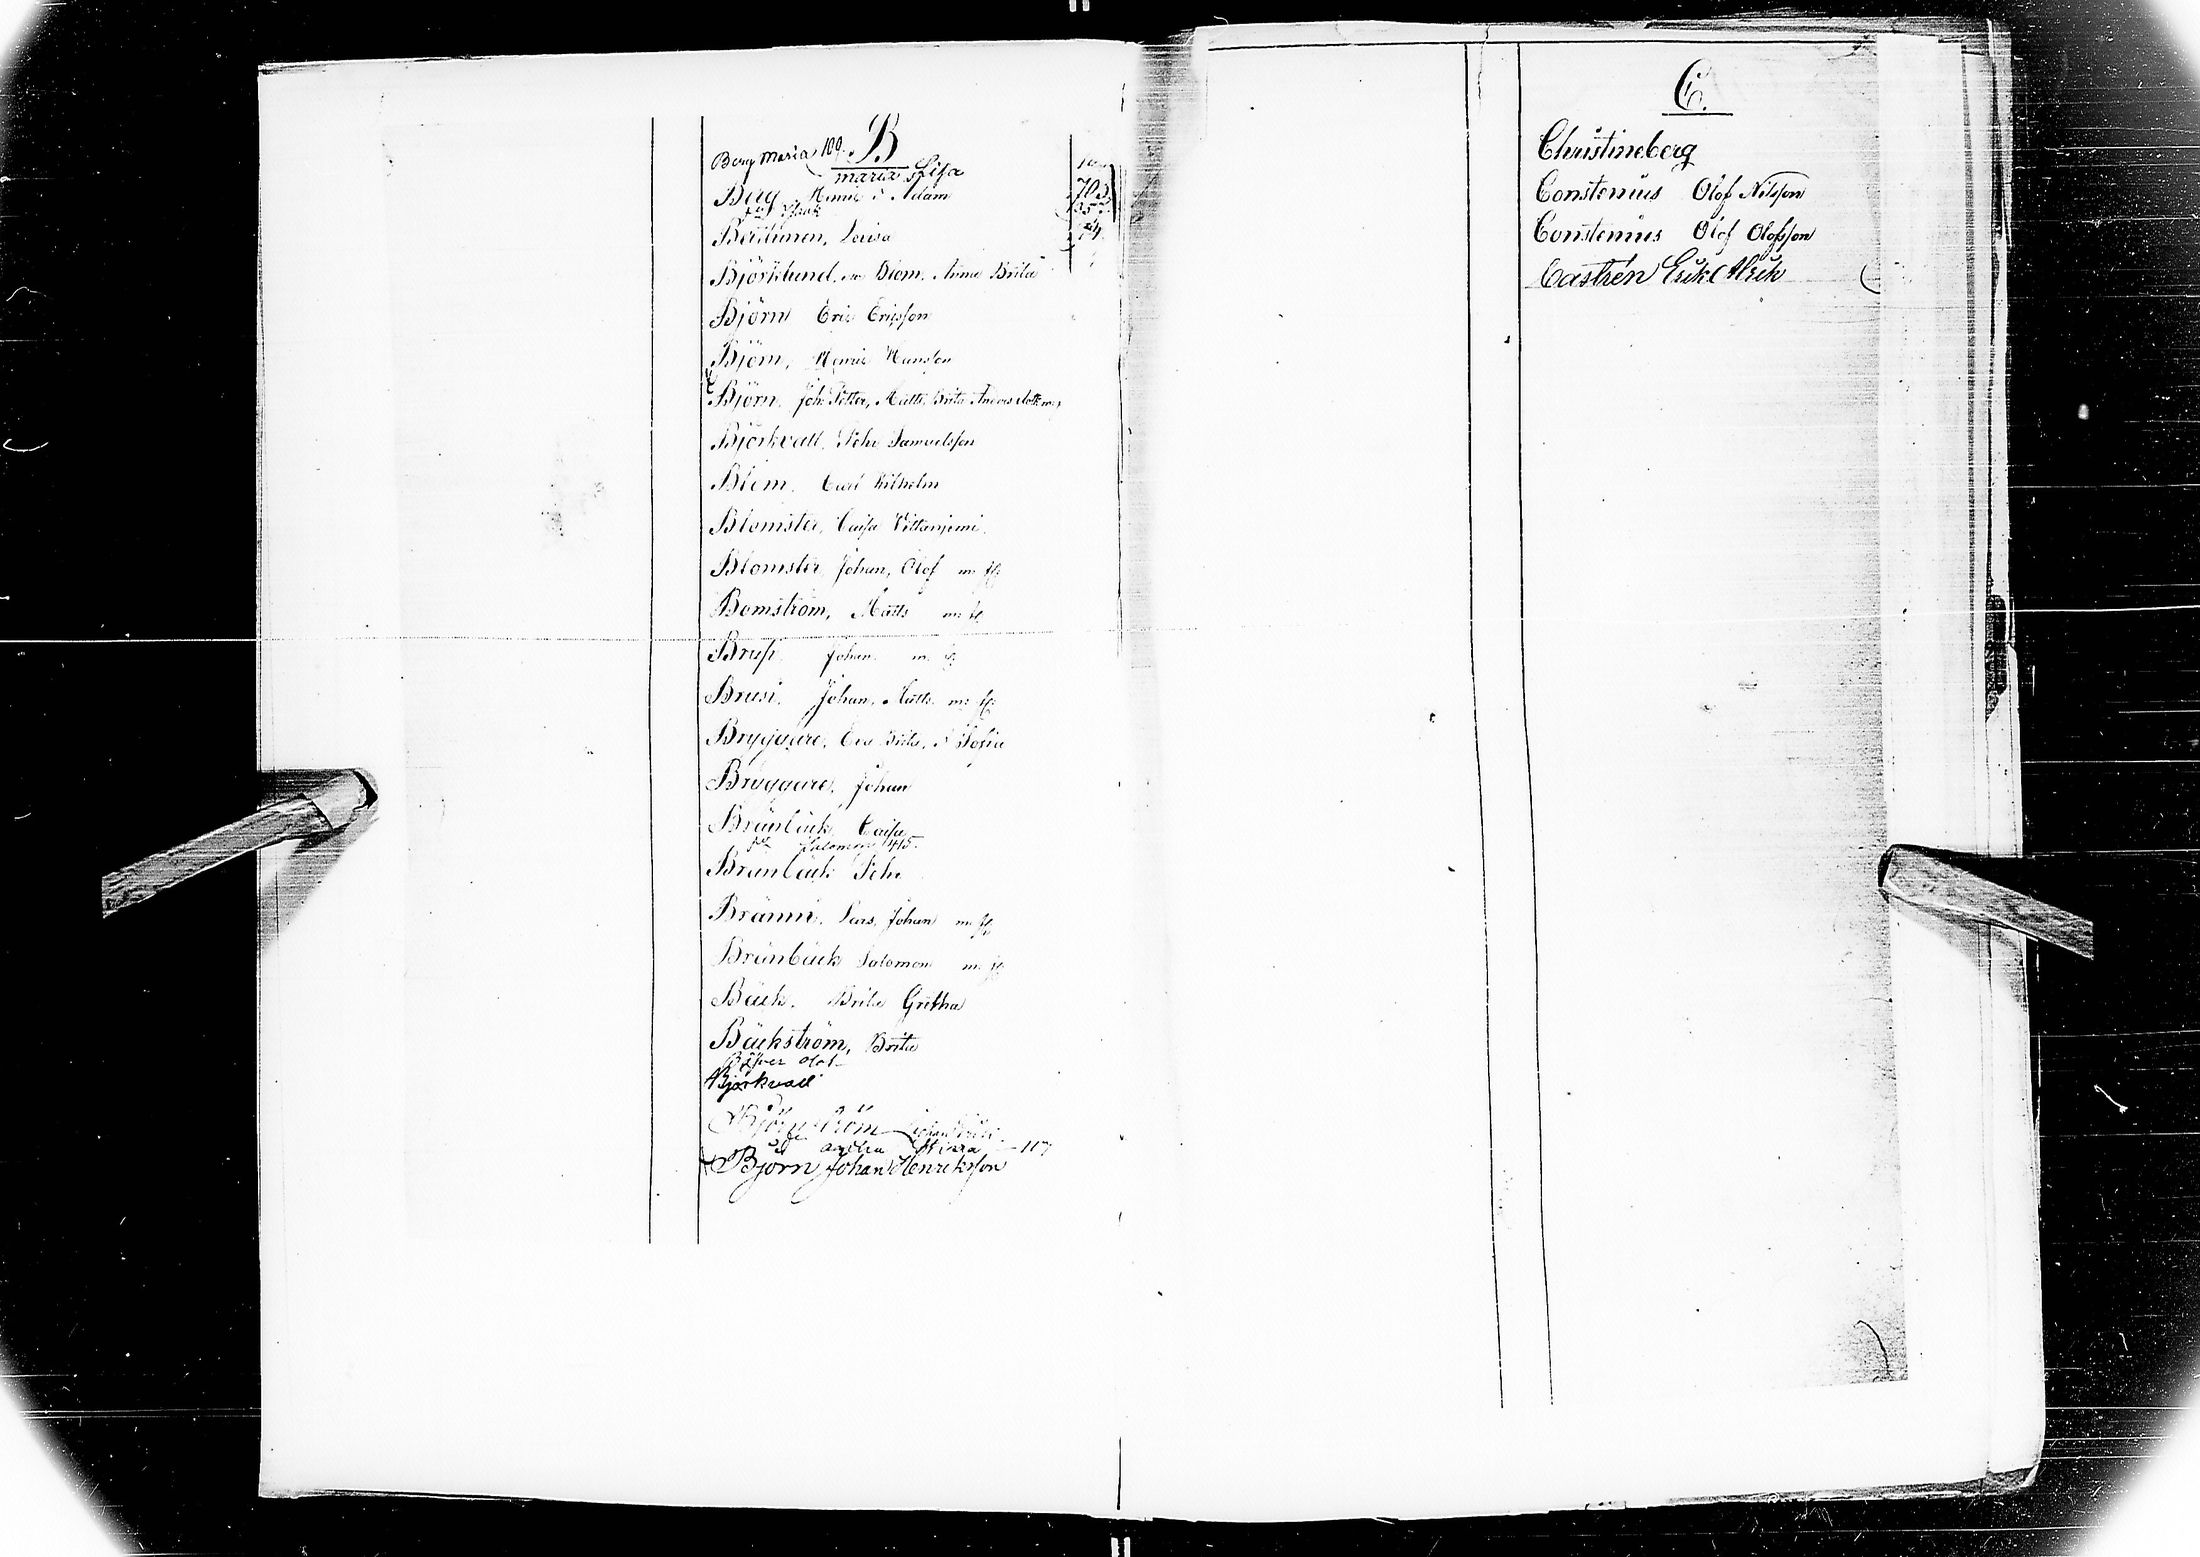 B
Berg Maria 109.
Maria Lisa
Berg Henric o Adam
do Isak
Bertlinen, Lovisa
Björklund, Anna Brita
Björn Eric Ericsson
Björn, Henric Hansson
Björn, Joh. Petter, Matts, Brita
Björkvall, Joh. Samuelsson
Blom, Carl Wilhelm
Blomster, Caisa
Blomster Johan, Olof m. fl.
Bomström, Matts m. fl.
Brusi Johan m. fl.
Brusi, Johan, Matts m. fl.
Bryggare, Eva Brita, o Sofia
Bryggare, Johan
Bränback, Caisa
do Salomon 415
Bränbäck Joh.
Bränni, Lars, Johan m. fl.
Bränbäck Salomon m. fl.
Bäck, Brita Gretha
Bäckström, Brita
Olof
Björkvall
Björnström
Stina 117
Björn Johan Henriksson
C.
Christineberg
Constenius Olof Nilsson
Constenius Olof Olofsson
Castrén Erik Ulrik